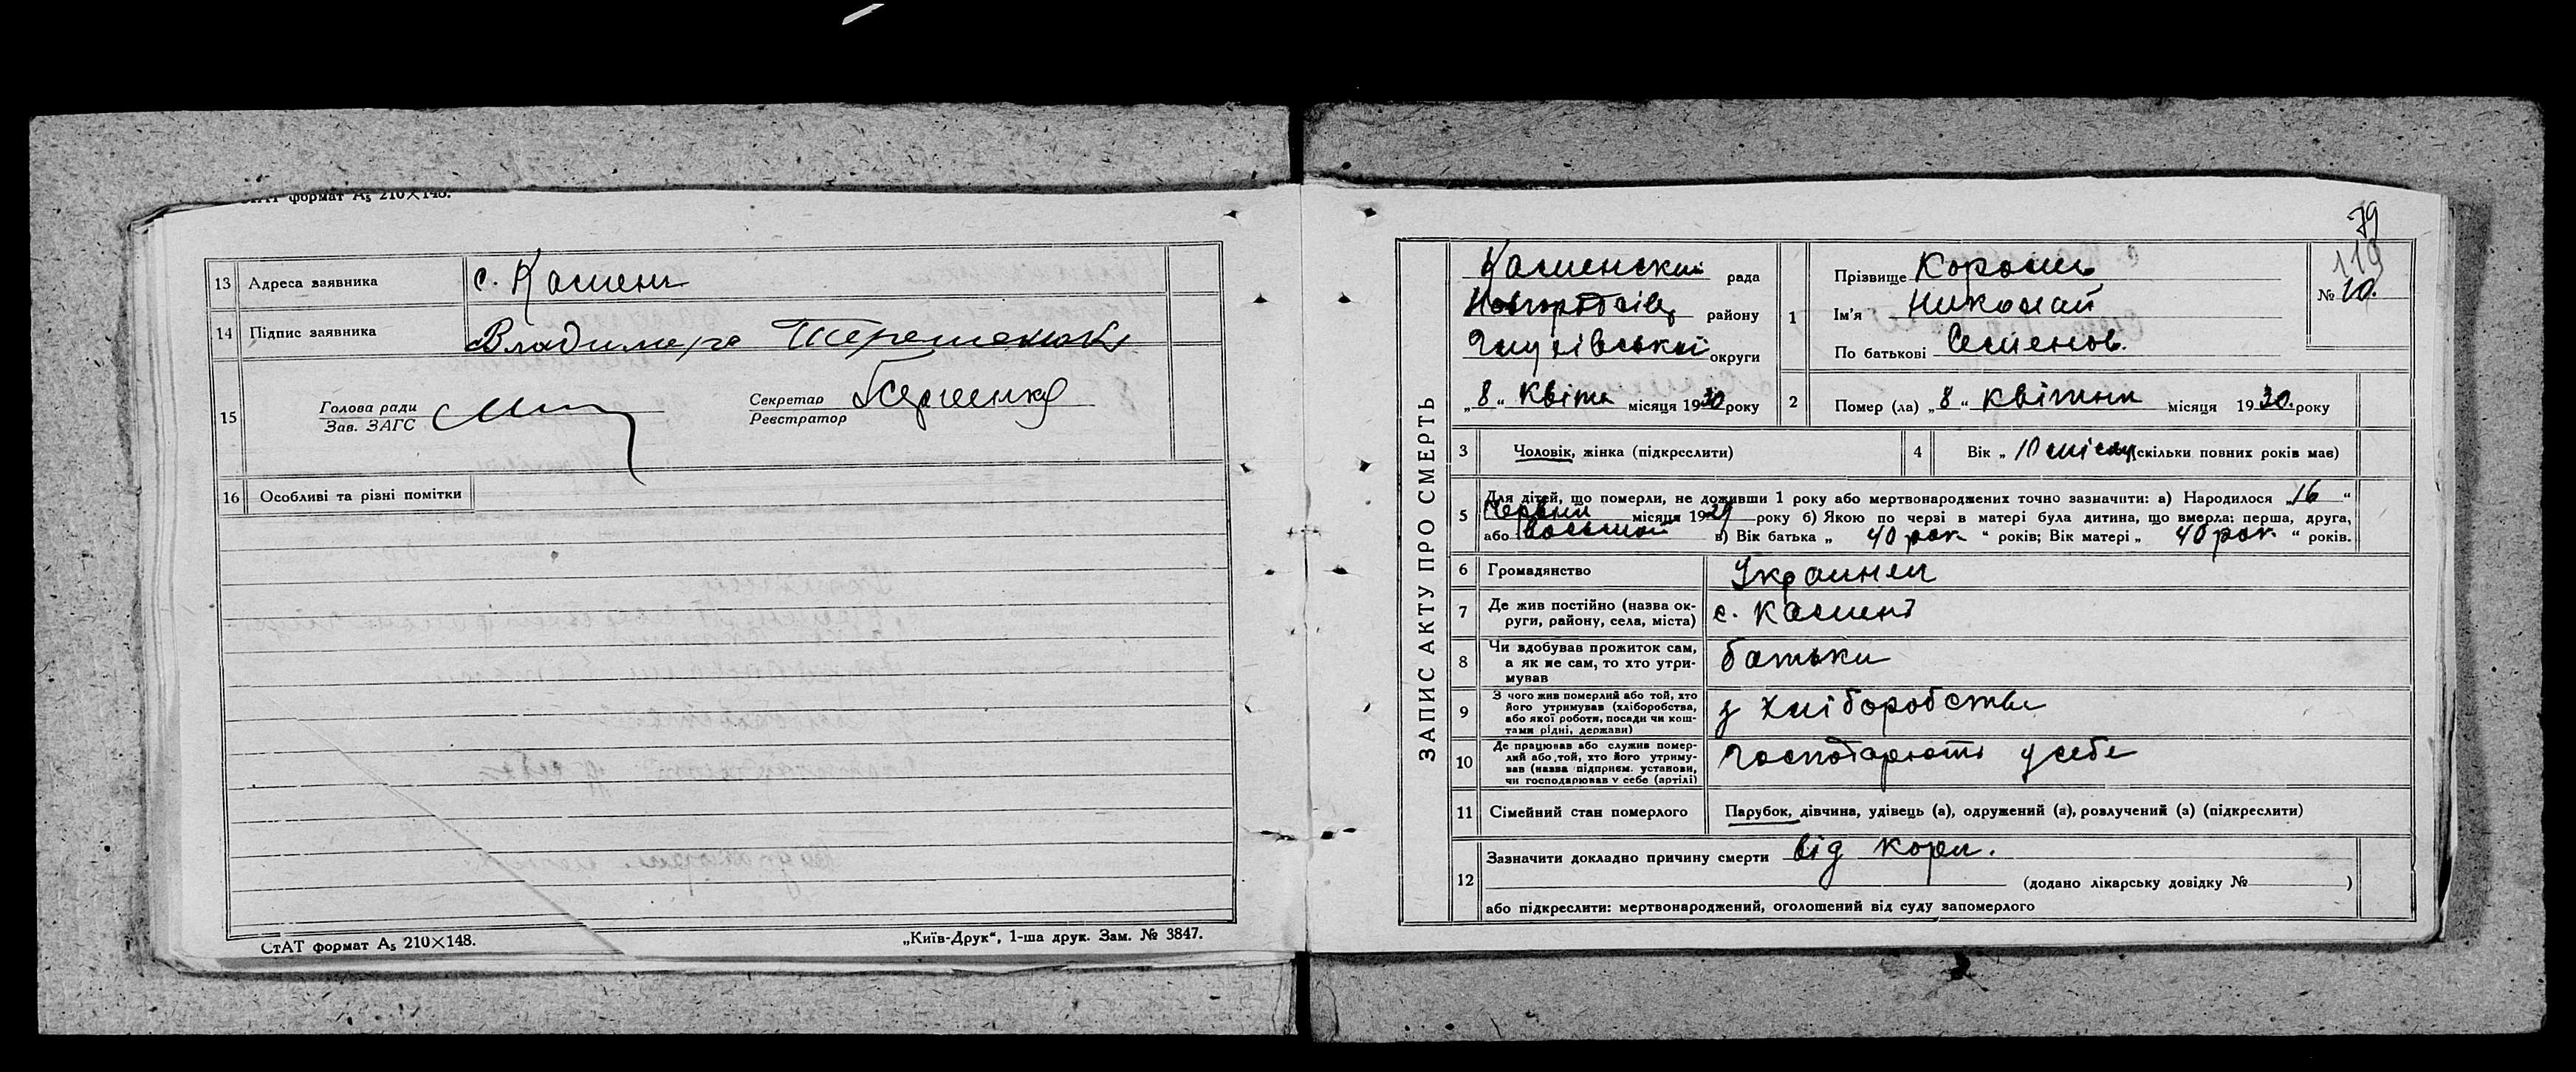 СтАТ формат А5 210×148.
13 Адреса заявника с. Камень
14 Підпис заявника Владимера Терешенок
15 Голова ради
Зав. ЗАГС
Секретар
Реєстратор
16 Особливі та різні помітки
СтАТ формат А5 210×148.
„Київ-Друк“, 1-ша друк. Зам. № 3847.
79
119
№ 10.
ЗАПИС АКТУ ПРО СМЕРТЬ
Каменский рада
району
Глухівської округи
„8“ Квітн місяця 1930 року
1 Прізвище Король
Ім'я Николай
По батькові Семенов.
2 Помер (ла) „8“ квітня місяця 1930. року
3 Чоловік, жінка (підкреслити)
4 Вік „10 місяц (скільки повних років має)
5 Для дітей, що померли, не доживши 1 року або мертвонароджених точно зазначити: а) Народилося „16“
Червня місяця 1929 року б) Якою по черзі в матері була дитина, що вмерла: перша, друга,
або восьмой в) Вік батька „ 40 рок “ років; Вік матері „ 40 рок “ років.
6 Громадянство Украинец
7 Де жив постійно (назва ок-
руги, району, села, міста) с. Камень
8 Чи здобував прожиток сам,
а як не сам, то хто утри-
мував батьки
9 З чого жив померлий або той, хто
його утримував (хліборобства,
або якої роботи, посади чи кош-
тами рідні, держави) з хліборобства
10 Де працював або служив помер-
лий або той, хто його утриму-
вав (назва підприєм. установи,
чи господарював у себе (артілі) господарюють у себе
11 Сімейний стан померлого Парубок, дівчина, удівець (а), одружений (а), розлучений (а) (підкреслити)
12 Зазначити докладно причину смерти від кори.
(додано лікарську довідку № )
або підкреслити: мертвонароджений, оголошений від суду запомерлого